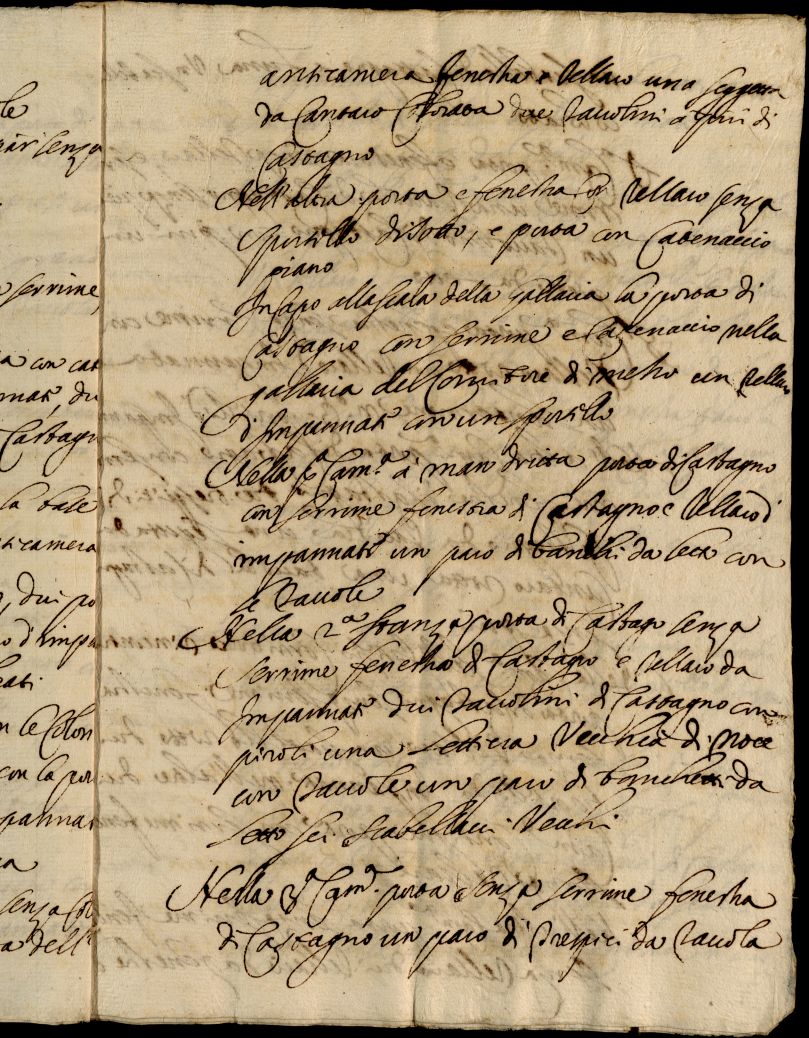 le
senza
serrime,
a con cat
mate, dui
Castagn
la tale
nticamera
, dui po
o d'impa
eati
n le Colon
con la por
pannat
a
senza
a dell
anticamera fenestra e Tellaro una seggetta
da Cantaro Colorata due Tavolini a piui di
Castagno
Nell'altra porta e fenestra con Tellaro senza
sportello di Sotto, e porta con Catenaccio
piano
In Capo alla scala della gallaria la porta di
Castagno con serrime e Catenaccio nella
gallaria del Corritore di mezzo un Tellaro
d'Impannate con un sportello
Nella p.ª Cam.ª a man dritta porta di Castagno
con serrime fenestra di Castagno e Tellaro d'
impannate un paro di banchi da letto con
le Tavole
Nella 2ª Stanza porta di Castagno senza
serrime fenestra di Castagno e Tellaro da
Impannate dui Tavolini di Castagno con
piroli una Lettiera Vecchia di noce
con Tavole un paro di banchetti da
Letto sei Scabellacci Vecchi
Nella 3ª Cam.ª porta senza serrime fenestra
di Castagno un paro di Trespici da Tavola